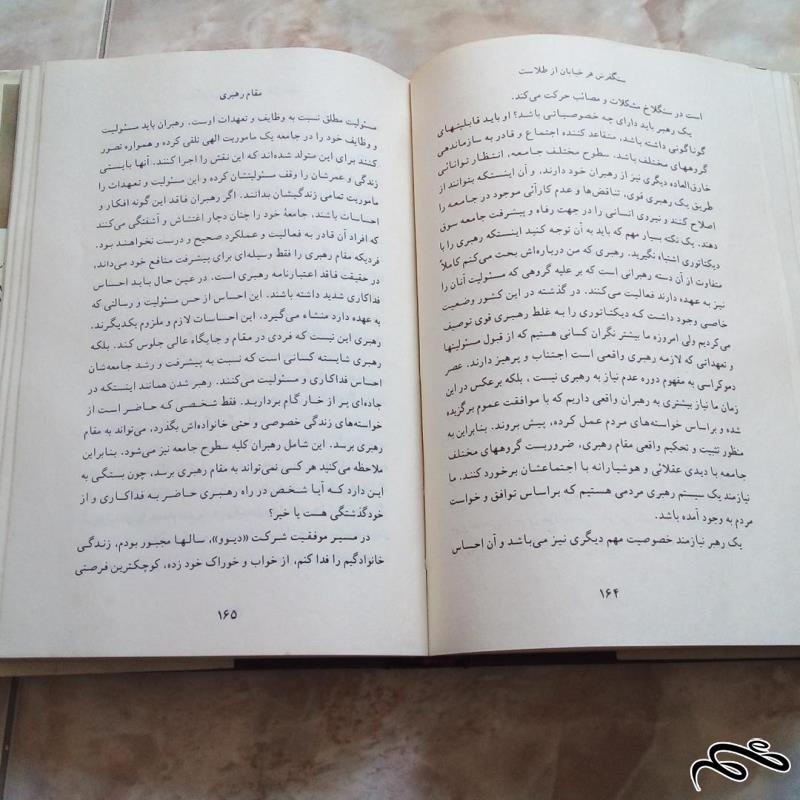 سنگفرش هر خیابان از طلاست
است در سنگلاخ مشکلات و مصائب حرکت می‌کند.
یک رهبر باید دارای چه خصوصیاتی باشد؟ او باید قابلیتهای
گوناگونی داشته باشد، متقاعد کننده اجتماع و قادر به سازماندهی
گروههای مختلف باشد. سطوح مختلف جامعه، انتظار توانائی
خارق‌العاده دیگری نیز از رهبران خود دارند، و آن اینستکه بتوانند از
طریق یک رهبری قوی، تناقض‌ها و عدم کارآئی موجود در جامعه را
اصلاح کنند و نیروی انسانی را در جهت رفاه و پیشرفت جامعه سوق
دهند. یک نکته بسیار مهم که باید به آن توجه کنید اینستکه رهبری را با
دیکتاتوری اشتباه نگیرید. رهبری که من درباره‌اش بحث می‌کنم کاملاً
متفاوت از آن دسته رهبرانی است که بر علیه گروهی که مسئولیت آنان را
نیز به عهده دارند فعالیت می‌کنند. در گذشته در این کشور وضعیت
خاصی وجود داشت که دیکتاتوری را به غلط رهبری قوی توصیف
می‌کردیم ولی امروزه ما بیشتر نگران کسانی هستیم که از قبول مسئولیتها
و تعهداتی که لازمه رهبری واقعی است اجتناب و پرهیز دارند. عصر
دموکراسی به مفهوم دوره عدم نیاز به رهبری نیست ، بلکه برعکس در این
زمان ما نیاز بیشتری به رهبران واقعی داریم که با موافقت عموم برگزیده
شده و براساس خواسته‌های مردم عمل کرده، پیش بروند. بنابراین به
منظور تثبیت و تحکیم واقعی مقام رهبری، ضروریست گروههای مختلف
جامعه با دیدی عقلائی و هوشیارانه با اجتماعشان برخورد کنند. ما
نیازمند یک سیستم رهبری مردمی هستیم که براساس توافق و خواست
مردم به وجود آمده باشد.
یک رهبر نیازمند خصوصیت مهم دیگری نیز می‌باشد و آن احساس
۱۶۴
مقام رهبری
مسئولیت مطلق نسبت به وظایف و تعهدات اوست. رهبران باید مسئولیت
و وظایف خود را در جامعه یک ماموریت الهی تلقی کرده و همواره تصور
کنند برای این متولد شده‌اند که این نقش را اجرا کنند. آنها بایستی
زندگی و عمرشان را وقف مسئولیتشان کرده و این مسئولیت و تعهدات را
ماموریت تمامی زندگیشان بدانند. اگر رهبران فاقد این گونه افکار و
احساسات باشند، جامعهٔ خود را چنان دچار اغتشاش و آشفتگی می‌کنند
که افراد آن قادر به فعالیت و عملکرد صحیح و درست نخواهند بود.
فردیکه مقام رهبری را فقط وسیله‌ای برای پیشرفت منافع خود می‌داند،
در حقیقت فاقد اعتبارنامه رهبری است. در عین حال باید احساس
فداکاری شدید داشته باشند. این احساس از حس مسئولیت و رسالتی که
به عهده دارد منشاء می‌گیرد. این احساسات لازم و ملزوم یکدیگرند.
رهبری این نیست که فردی در مقام و جایگاه عالی جلوس کند. بلکه
رهبری شایسته کسانی است که نسبت به پیشرفت و رشد جامعه‌شان
احساس فداکاری و مسئولیت می‌کنند. رهبر شدن همانند اینستکه در
جاده‌ای پر از خار گام بردارید. فقط شخصی که حاضر است از
خواسته‌های زندگی خصوصی و حتی خانواده‌اش بگذرد، می‌تواند به مقام
رهبری برسد. این شامل رهبران کلیه سطوح جامعه نیز می‌شود. بنابراین
ملاحظه می‌کنید هر کسی نمی‌تواند به مقام رهبری برسد، چون بستگی به
این دارد که آیا شخص در راه رهبری حاضر به فداکاری و از
خودگذشتگی هست یا خیر؟
در مسیر موفقیت شرکت «دیوو»، سالها مجبور بودم، زندگی
خانوادگیم را فدا کنم، از خواب و خوراک خود زده، کوچکترین فرصتی
۱۶۵